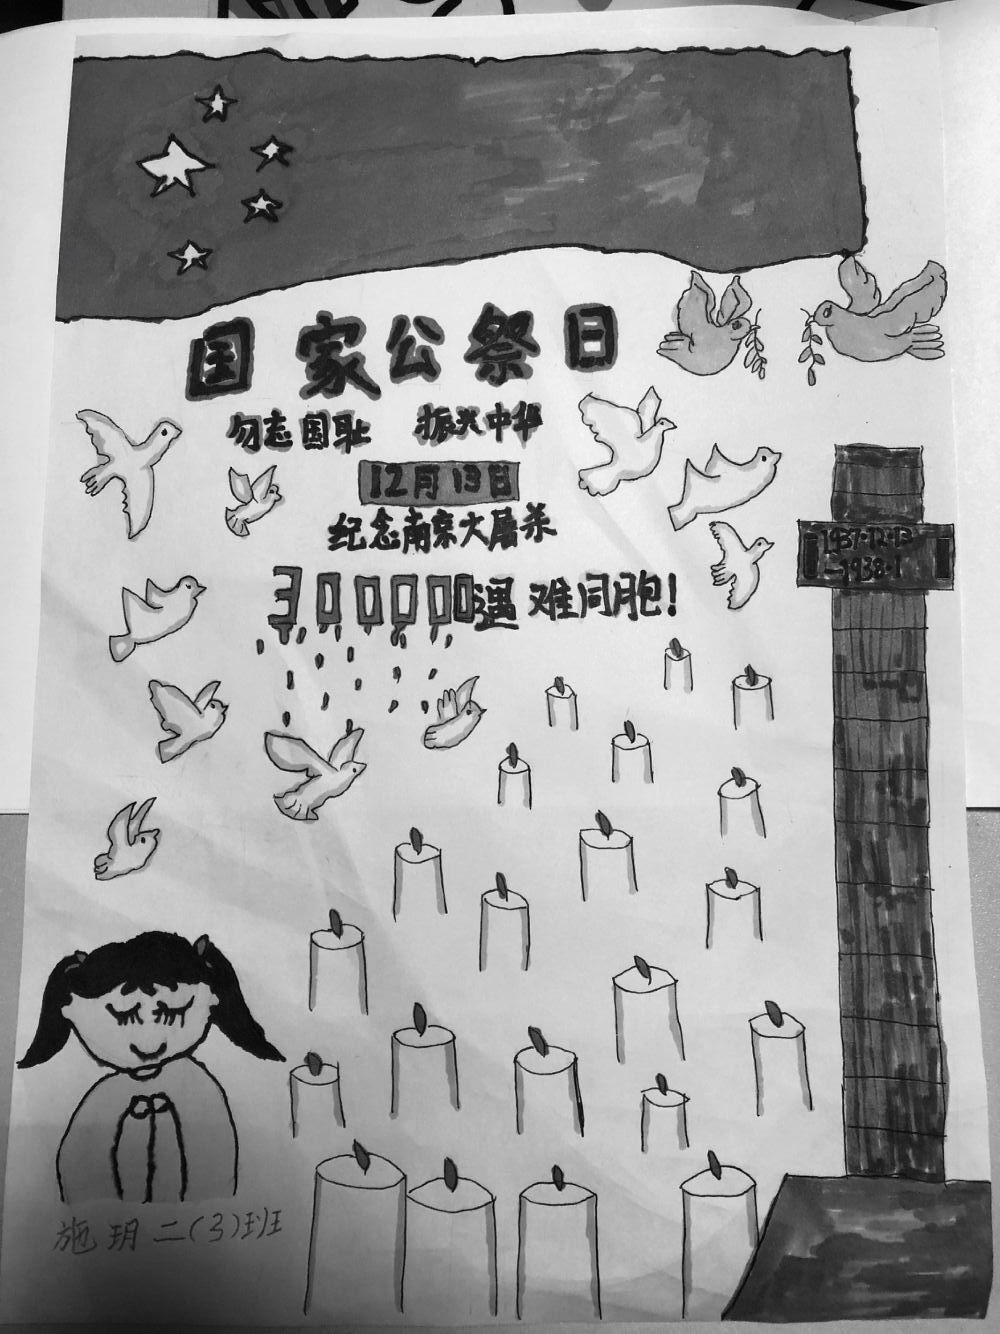 国家公祭日
勿忘国耻 振兴中华
12月13日
纪念南京大屠杀
300000遇难同胞!
1937·12·13
-1938·1
施玥二(3)班